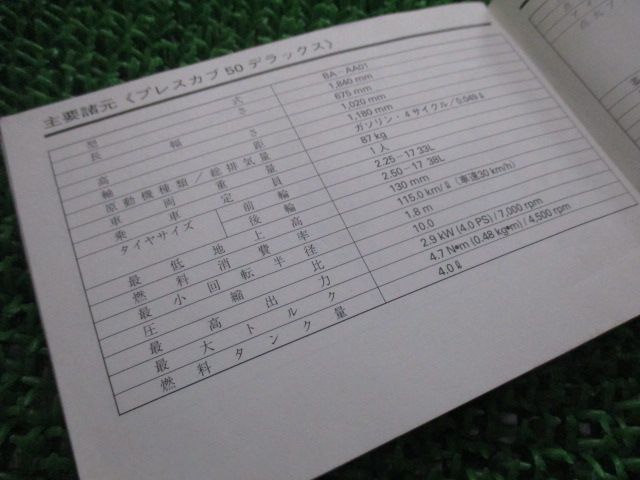 主要諸元《プレスカブ50デラックス》
型式 BA-AA01
長さ 1,840 mm
幅 675 mm
高さ 1,020 mm
軸距 1,180 mm
原動機種類/総排気量 ガソリン・4サイクル/0.049 ℓ
車両重量 87 kg
乗車定員 1人
タイヤサイズ 前輪 2.25-17 33L
後輪 2.50-17 38L
最低地上高 130 mm
燃料消費率 115.0 km/ℓ (車速30 km/h)
最小回転半径 1.8 m
圧縮比 10.0
最高出力 2.9 kW (4.0 PS) / 7,000 rpm
最大トルク 4.7 N•m (0.48 kg•m) / 4,500 rpm
燃料タンク量 4.0 ℓ